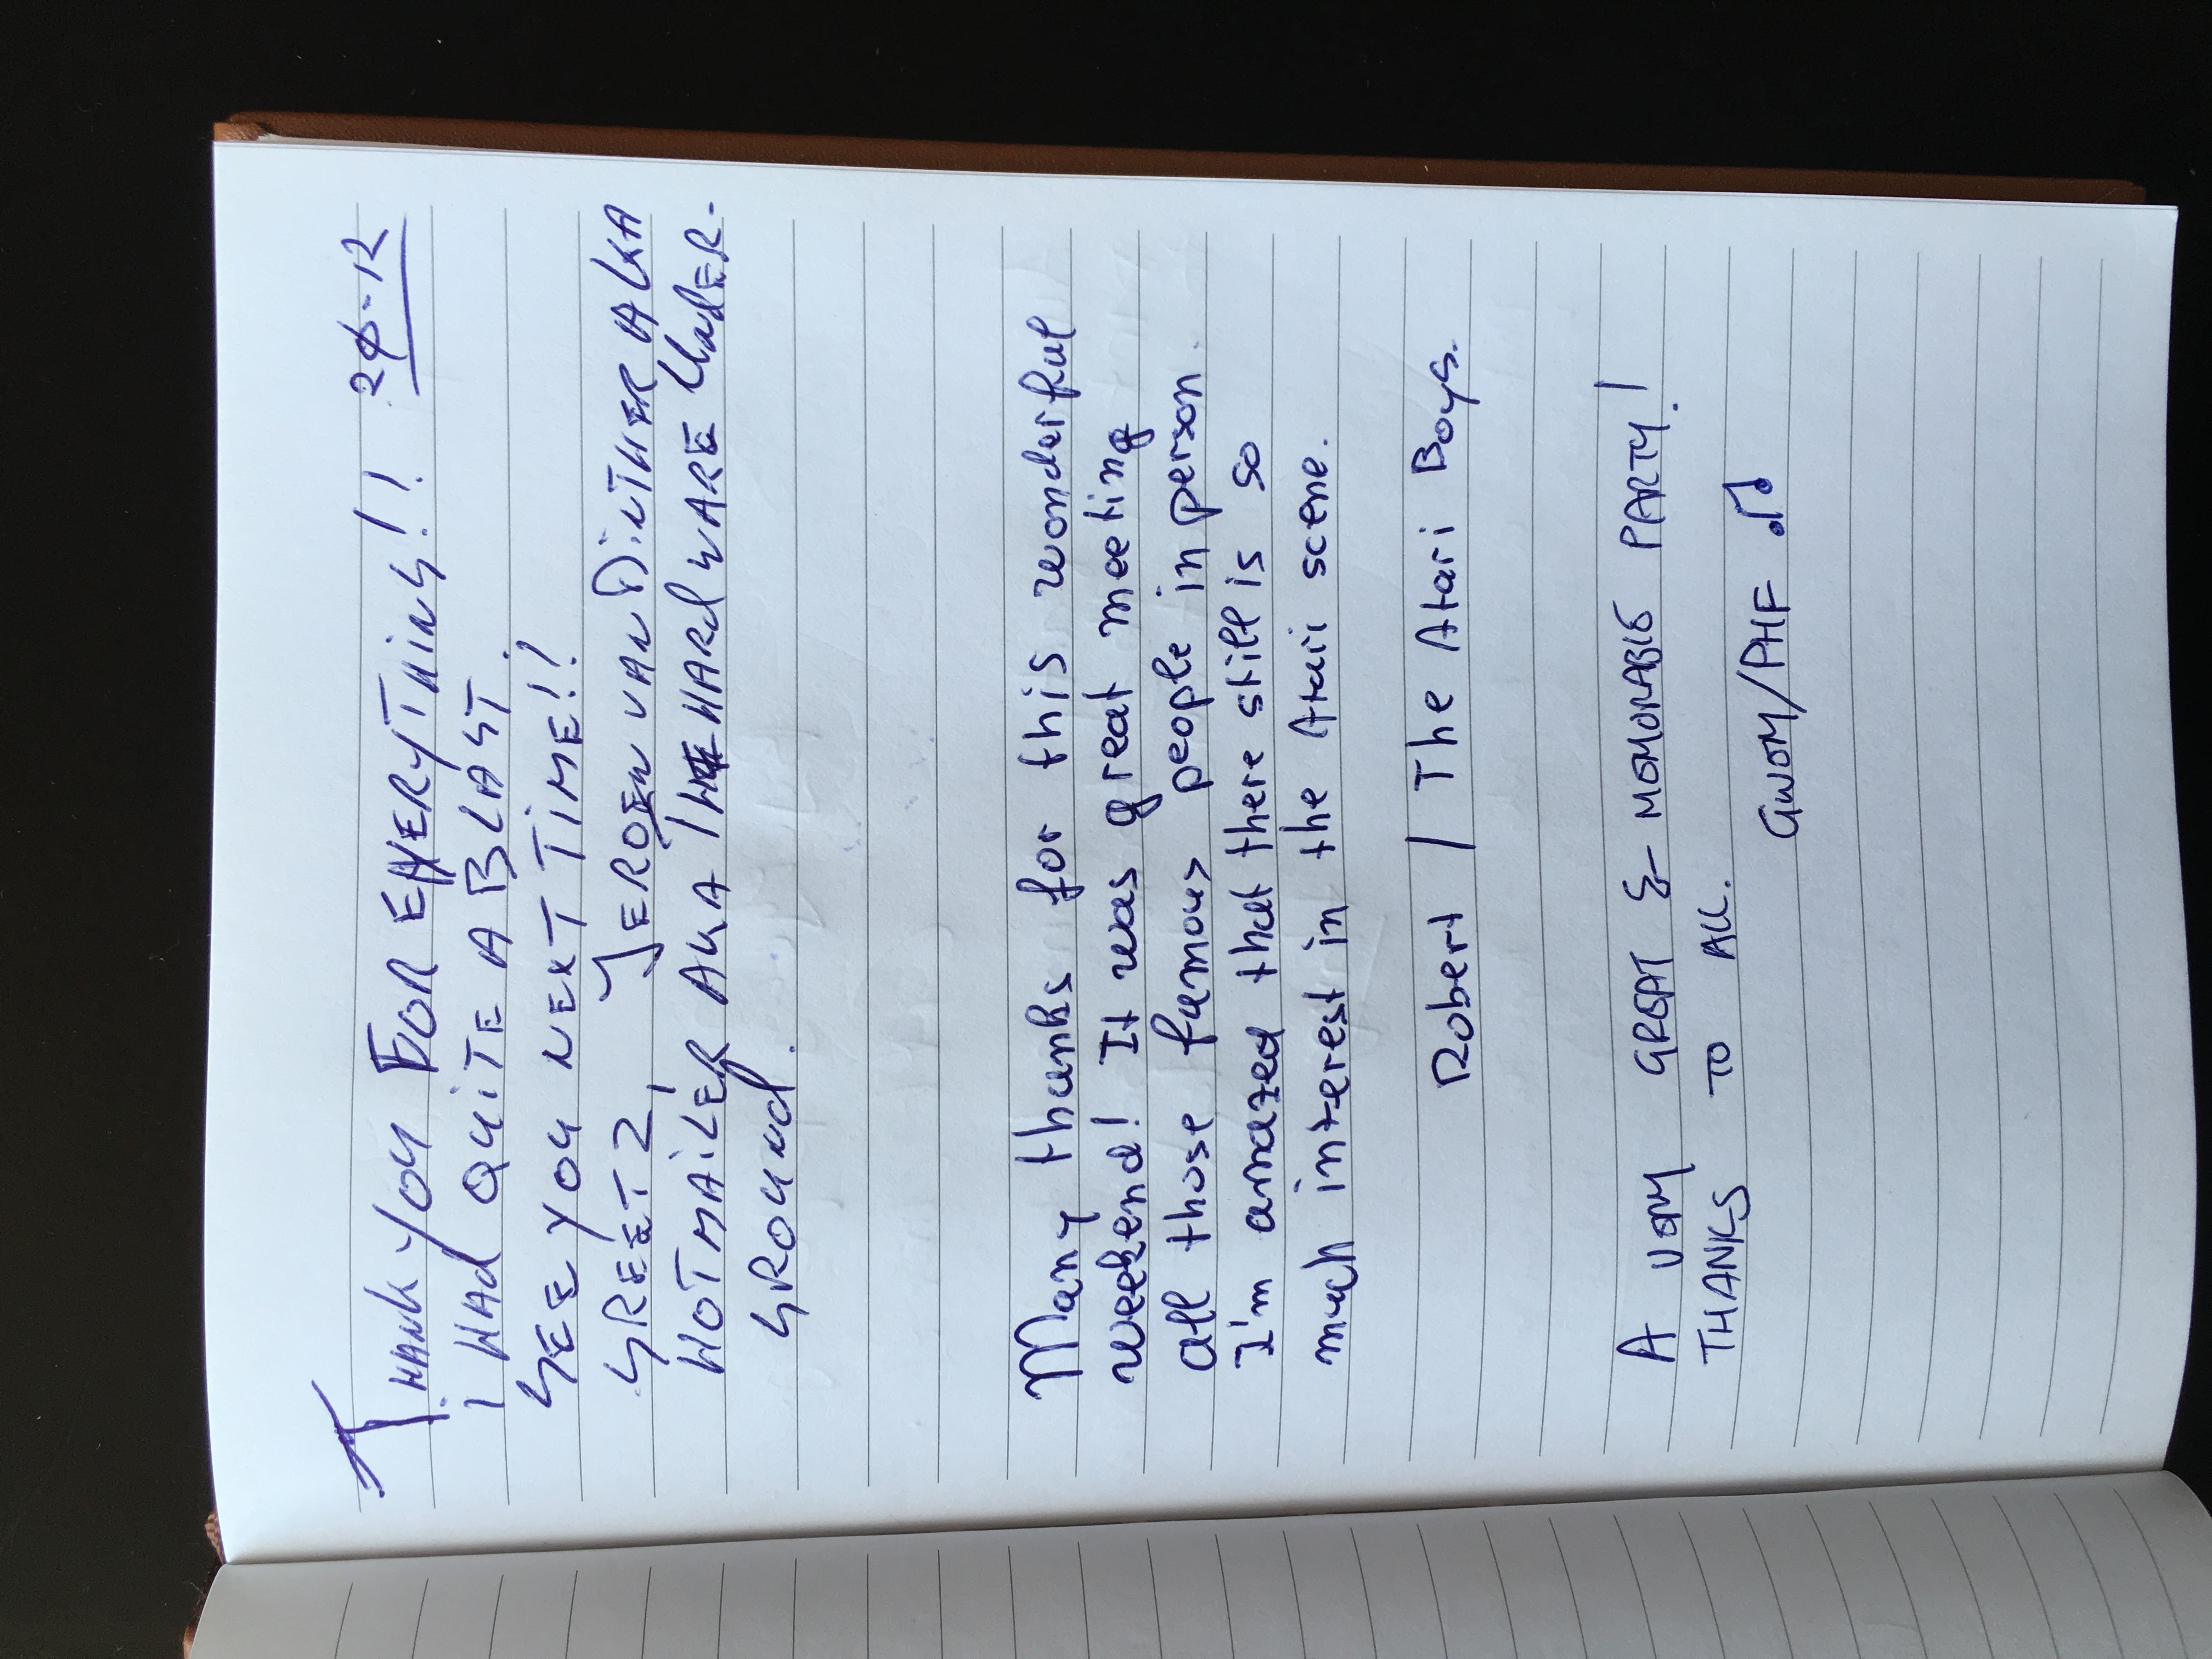 THANK YOU FOR EVERYTHING!! 20-12
I HAd QUITE A BLAST.
SEE YOU NEXT TIME!!
GREETZ, JEROEN VAN DINTHER AKA
HOTMAILER AKA THE HARdWARE UNdER.
GROUNd.
Many thanks for this wonderful
weekend! It was great meeting
all those famous people in person.
I'm amazed that there still is so
much interest in the Atari scene.
Robert / The Atari Boys.
A VERY GREAT & MEMORABLE PARTY!
THANKS TO ALL.
GWEM/PHF ♫